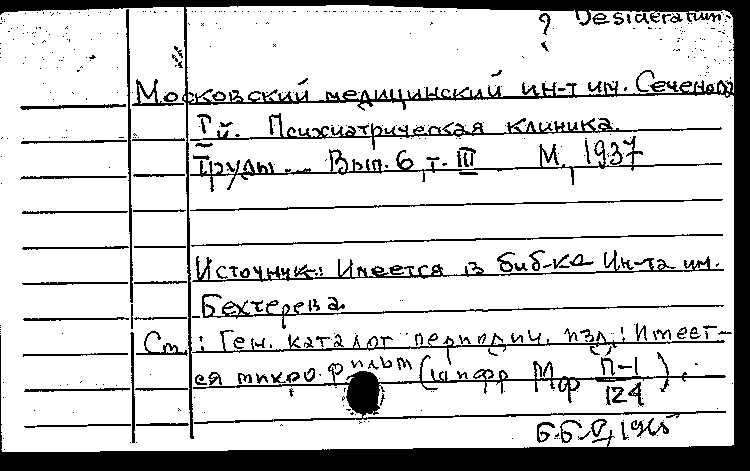 ? Desideratum.
Московский медицинский ин-т им. Сеченова
Iй. Психиатрическая клиника.
Труды... Вып. 6, т. III М., 1937
Источник: Имеется в биб-ке Ин-та им.
Бехтерева.
См.: Ген. каталог периодич. изд.: Имеет-
ся микрофильм (шифр Мф П-1/124).
1965